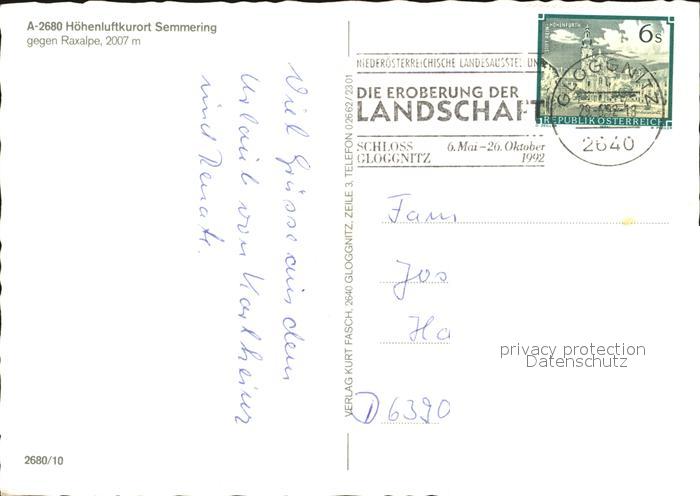 A-2680 Höhenluftkurort Semmering
gegen Raxalpe, 2007 m
Viel Grüsse aus dem
Urlaub von Karlheinz
und Renate.
2680/10
VERLAG KURT FASCH, 2640 GLOGGNITZ, ZEILE 3, TELEFON 02662/2301
NIEDERÖSTERREICHISCHE LANDESAUSSTELLUN
DIE EROBERUNG DER
LANDSCHAFT
SCHLOSS 6. Mai – 26. Oktober
GLOGGNITZ 1992
6 S
REPUBLIK ÖSTERREICH
GLOGGNITZ
2640
Fam
Jos
Ha
D 6390
privacy protection
Datenschutz